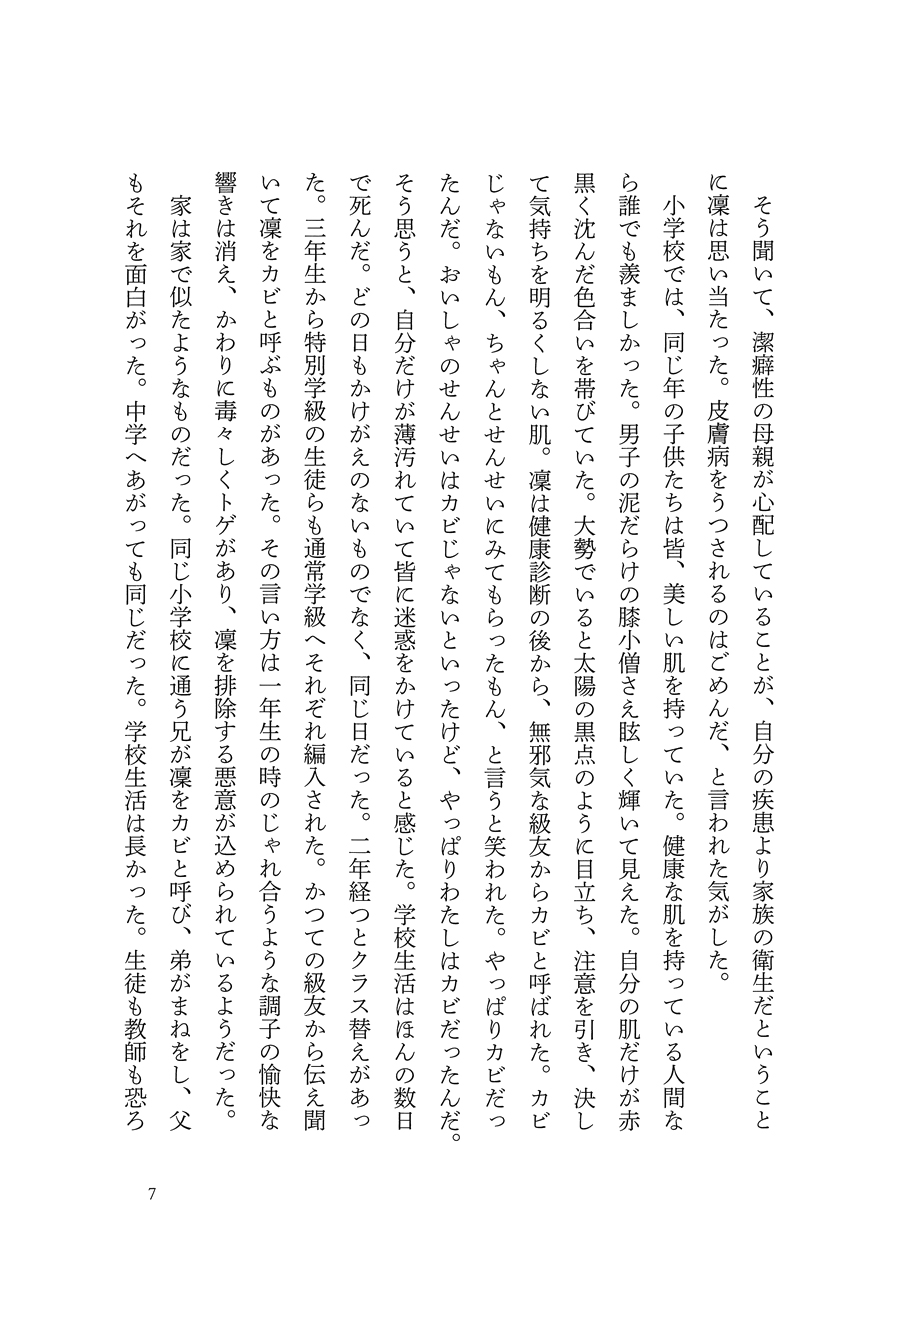 そう聞いて、潔癖性の母親が心配していることが、自分の疾患より家族の衛生だということ
に凜は思い当たった。皮膚病をうつされるのはごめんだ、と言われた気がした。
　小学校では、同じ年の子供たちは皆、美しい肌を持っていた。健康な肌を持っている人間な
ら誰でも羨ましかった。男子の泥だらけの膝小僧さえ眩しく輝いて見えた。自分の肌だけが赤
黒く沈んだ色合いを帯びていた。大勢でいると太陽の黒点のように目立ち、注意を引き、決し
て気持ちを明るくしない肌。凜は健康診断の後から、無邪気な級友からカビと呼ばれた。カビ
じゃないもん、ちゃんとせんせいにみてもらったもん、と言うと笑われた。やっぱりカビだっ
たんだ。おいしゃのせんせいはカビじゃないといったけど、やっぱりわたしはカビだったんだ。
そう思うと、自分だけが薄汚れていて皆に迷惑をかけていると感じた。学校生活はほんの数日
で死んだ。どの日もかけがえのないものでなく、同じ日だった。二年経つとクラス替えがあっ
た。三年生から特別学級の生徒らも通常学級へそれぞれ編入された。かつての級友から伝え聞
いて凜をカビと呼ぶものがあった。その言い方は一年生の時のじゃれ合うような調子の愉快な
響きは消え、かわりに毒々しくトゲがあり、凜を排除する悪意が込められているようだった。
　家は家で似たようなものだった。同じ小学校に通う兄が凜をカビと呼び、弟がまねをし、父
もそれを面白がった。中学へあがっても同じだった。学校生活は長かった。生徒も教師も恐ろ
7